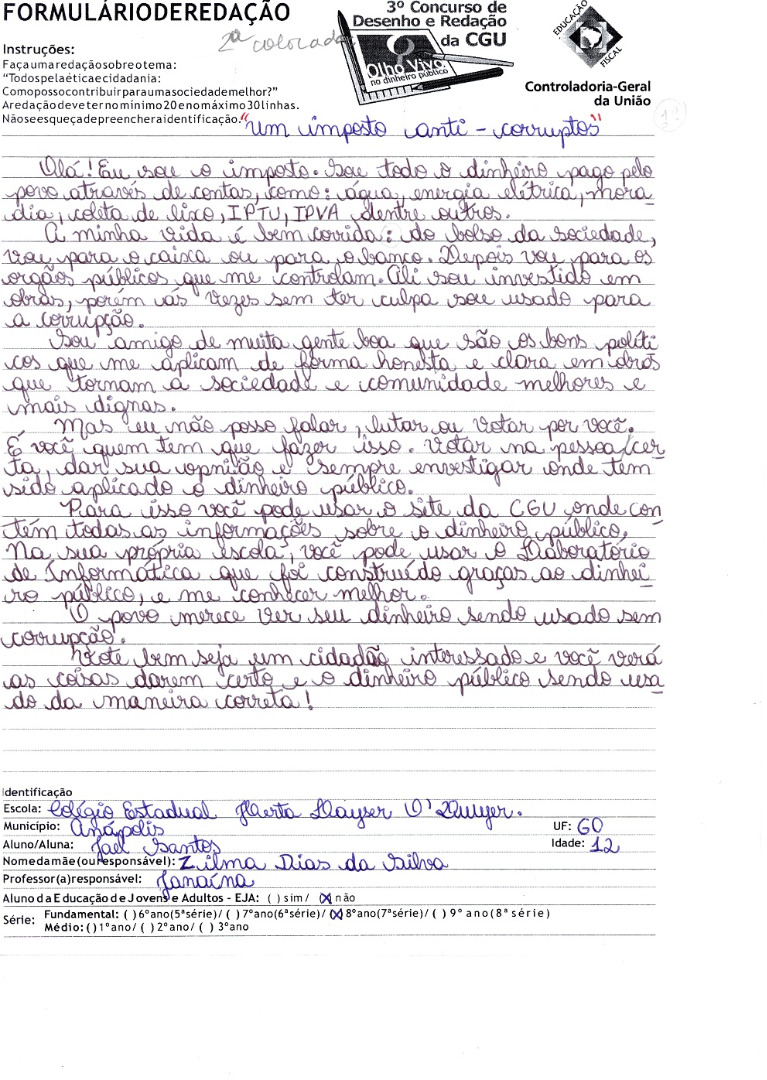 FORMULÁRIO DE REDAÇÃO
2ª colocada
3º Concurso de
Desenho e Redação
da CGU
Olho Vivo
no dinheiro público
EDUCAÇÃO
FISCAL
Controladoria-Geral
da União
1º
Instruções:
Faça uma redação sobre o tema:
"Todos pela ética e cidadania:
Como posso contribuir para uma sociedade melhor?"
A redação deve ter no mínimo 20 e no máximo 30 linhas.
Não se esqueça de preencher a identificação.
"Um imposto anti-corruptos"
Olá! Eu sou o imposto. Sou todo o dinheiro pago pelo
povo através de contas, como: água, energia elétrica, mora
dia, coleta de lixo, IPTU, IPVA dentre outros.
A minha vida é bem corrida: do bolso da sociedade,
vou para o caixa ou para o banco. Depois vou para os
orgãos públicos que me controlam. Ali sou investido em
obras, porém às vezes sem ter culpa sou usado para
a corrupção.
Sou amigo de muita gente boa que são os bons políti
cos que me aplicam de forma honesta e clara em obras
que tornam a sociedade e comunidade melhores e
mais dignas.
Mas eu não posso falar, lutar ou votar por você.
É você quem tem que fazer isso. Votar na pessoa cer
ta, dar sua opnião e sempre envestigar onde tem
sido aplicado o dinheiro público.
Para isso você pode usar o site da CGU onde con
tém todas as informações sobre o dinheiro público.
Na sua própria escola, você pode usar o Laboratório
de Informática que foi construído graças ao dinhei
ro público, e me conhecer melhor.
O povo merece ver seu dinheiro sendo usado sem
corrupção.
Vote bem seja um cidadão interessado e você verá
as coisas darem certo e o dinheiro público sendo usa
do da maneira correta!
Identificação
Escola: Colégio Estadual Herta Layser O'Dwyer.
Município: Anápolis UF: GO
Aluno/Aluna: Jael Santos Idade: 12
Nome da mãe (ou responsável): Zilma Dias da Silva
Professor(a) responsável: Janaína
Aluno da Educação de Jovens e Adultos - EJA: ( ) sim / (X) não
Série: Fundamental: ( ) 6º ano (5ª série)/ ( ) 7º ano (6ª série)/ (X) 8º ano (7ª série)/ ( ) 9º ano (8ª série)
Médio: ( ) 1º ano/ ( ) 2º ano/ ( ) 3º ano